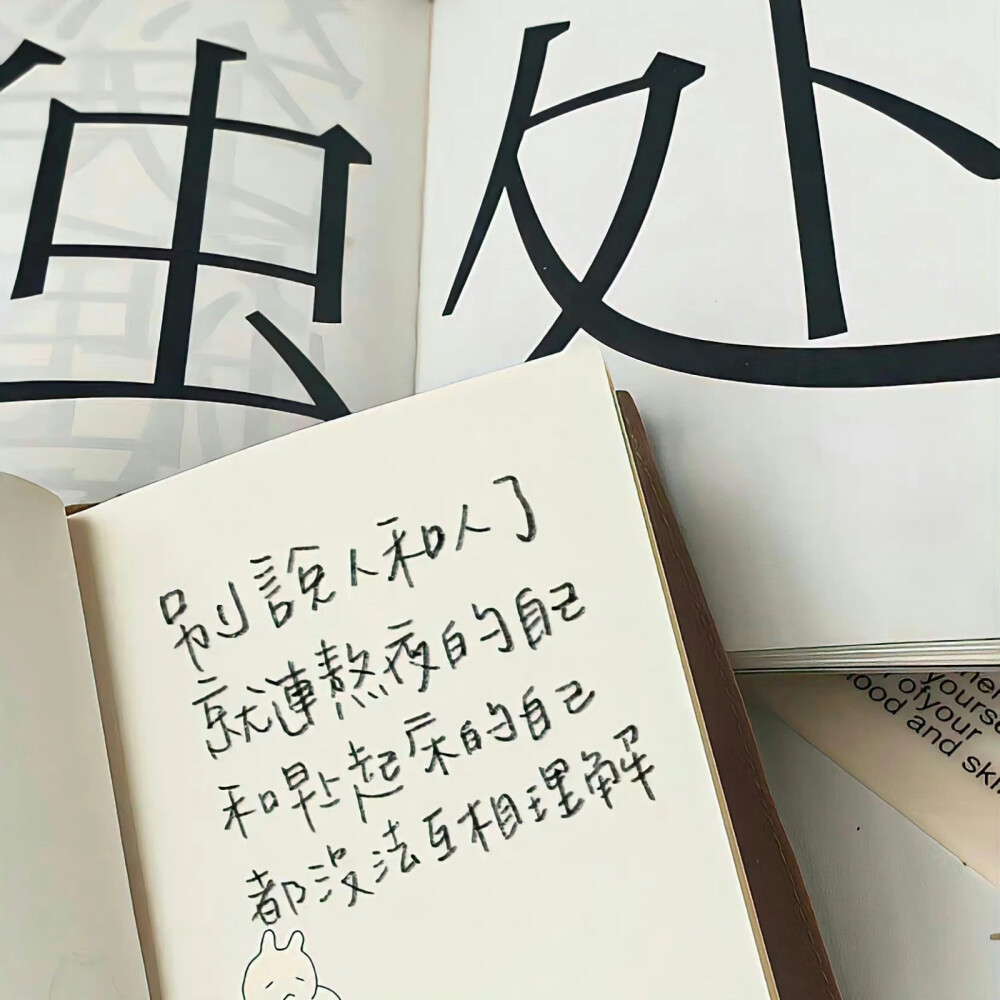 独处
別說人和人了
就連熬夜的自己
和早上起床的自己
都沒法互相理解
yourself
of your
food and skin